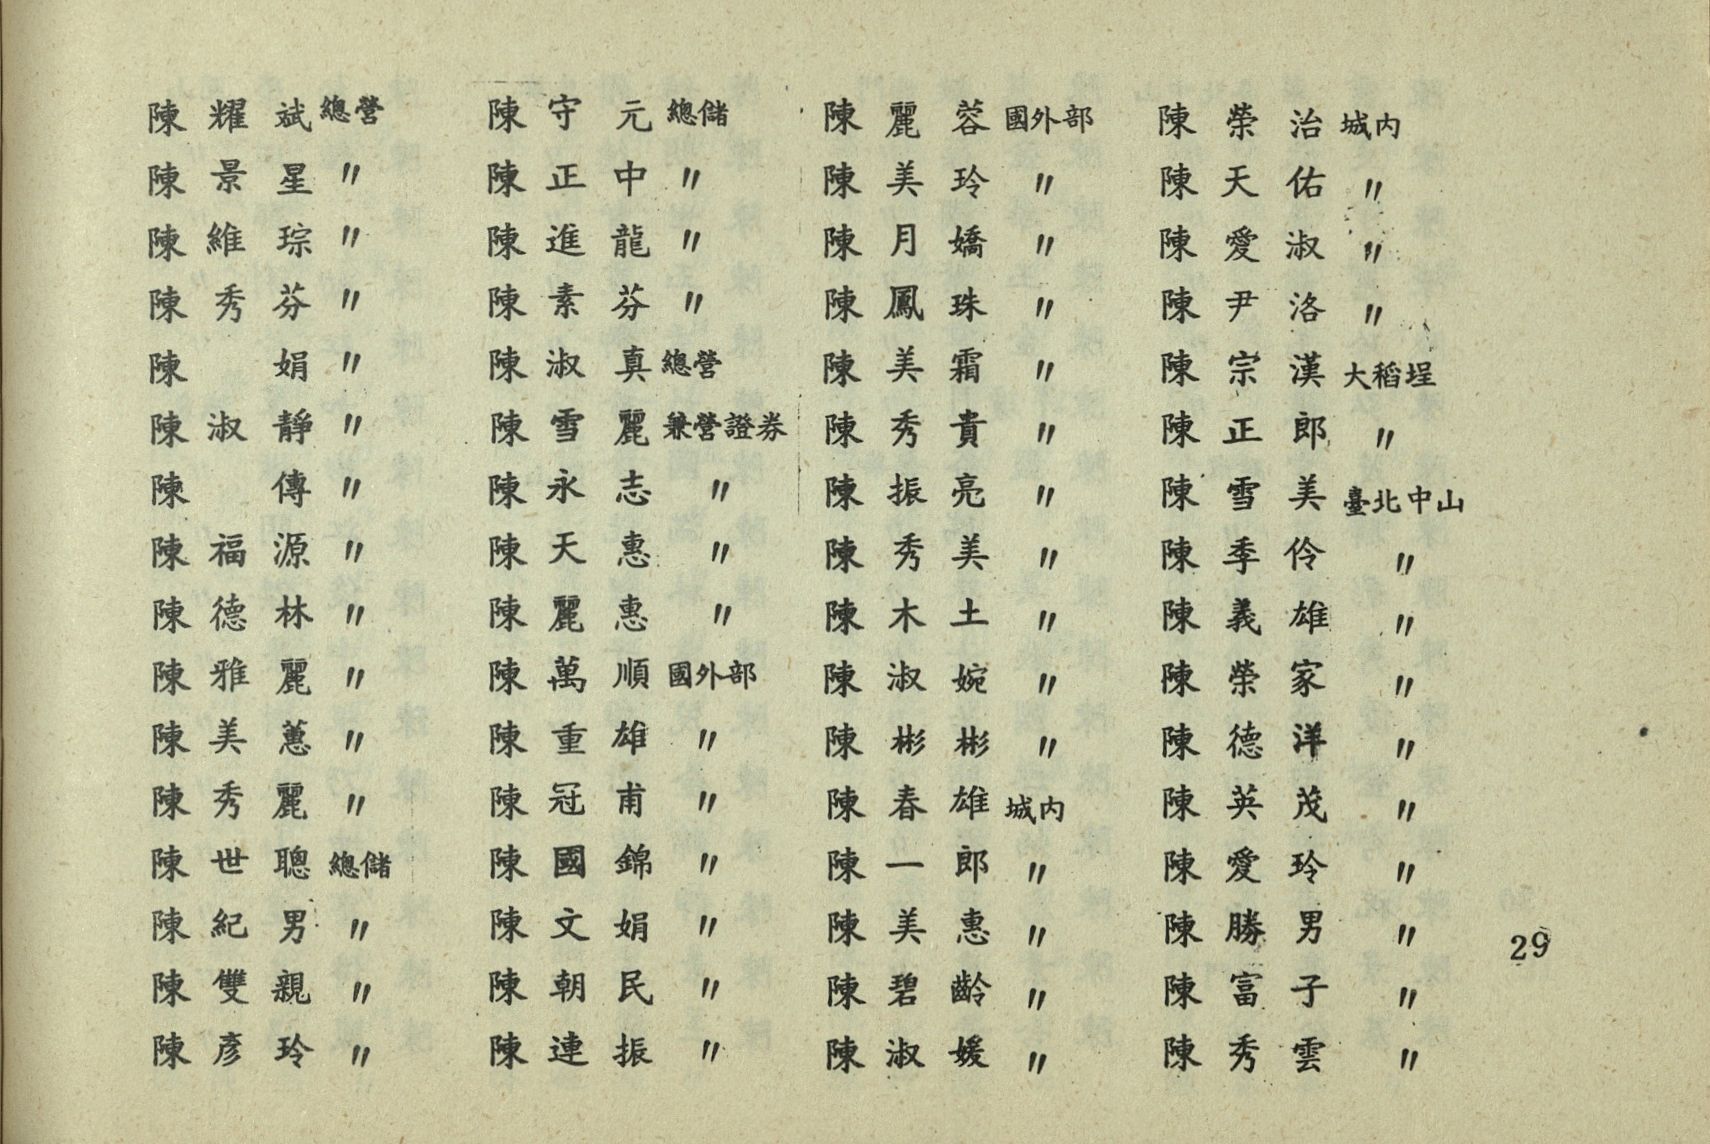 陳耀斌 總營
陳景星 〃
陳維琮 〃
陳秀芬 〃
陳　娟 〃
陳淑靜 〃
陳　傳 〃
陳福源 〃
陳德林 〃
陳雅麗 〃
陳美蕙 〃
陳秀麗 〃
陳世聰 總儲
陳紀男 〃
陳雙親 〃
陳彥玲 〃
陳守元 總儲
陳正中 〃
陳進龍 〃
陳素芬 〃
陳淑真 總營
陳雪麗 兼營證券
陳永志 〃
陳天惠 〃
陳麗惠 〃
陳萬順 國外部
陳重雄 〃
陳冠甫 〃
陳國錦 〃
陳文娟 〃
陳朝民 〃
陳連振 〃
陳麗蓉 國外部
陳美玲 〃
陳月嬌 〃
陳鳳珠 〃
陳美霜 〃
陳秀貴 〃
陳振亮 〃
陳秀美 〃
陳木土 〃
陳淑婉 〃
陳彬彬 〃
陳春雄 城內
陳一郎 〃
陳美惠 〃
陳碧齡 〃
陳淑媛 〃
陳榮治 城內
陳天佑 〃
陳愛淑 〃
陳尹洛 〃
陳宗漢 大稻埕
陳正郎 〃
陳雪美 臺北中山
陳季伶 〃
陳義雄 〃
陳榮家 〃
陳德洋 〃
陳英茂 〃
陳愛玲 〃
陳勝男 〃
陳富子 〃
陳秀雲 〃
29